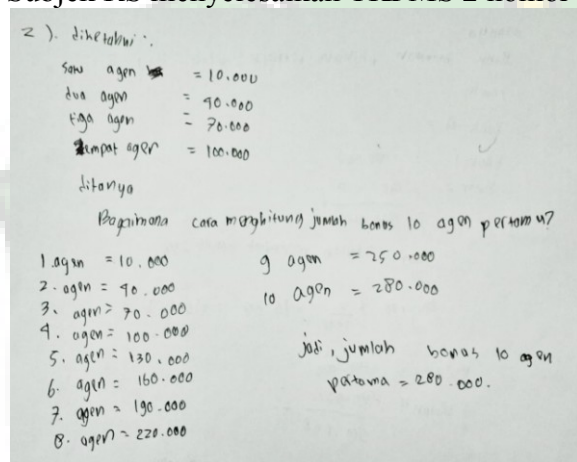 2). diketahui :
satu agen = 10.000
dua agen = 40.000
tiga agen = 70.000
empat agen = 100.000
ditanya
Bagaimana cara menghitung jumlah bonus 10 agen pertama?
1. agen = 10.000
2. agen = 40.000
3. agen = 70.000
4. agen = 100.000
5. agen = 130.000
6. agen = 160.000
7. agen = 190.000
8. agen = 220.000
9 agen = 250.000
10 agen = 280.000
jadi, jumlah bonus 10 agen
pertama = 280.000.